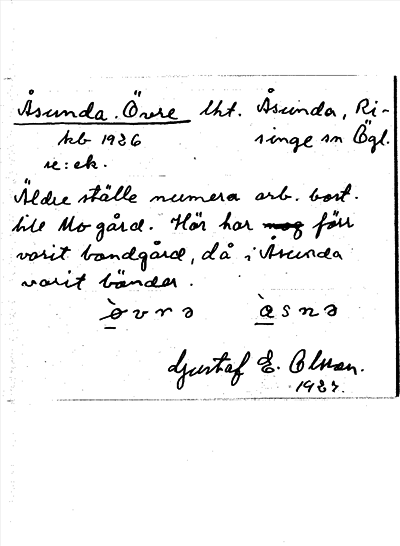 Åsunda. Övre lht. Åsunda, Ri-
kb 1926 singe sn Ögl.
se: ek.
Äldre ställe numera arb. bost.
till Mogård. Här har förr
varit bondgård, då i Åsunda
varit bönder.
Gustaf E. Olsson.
1927.